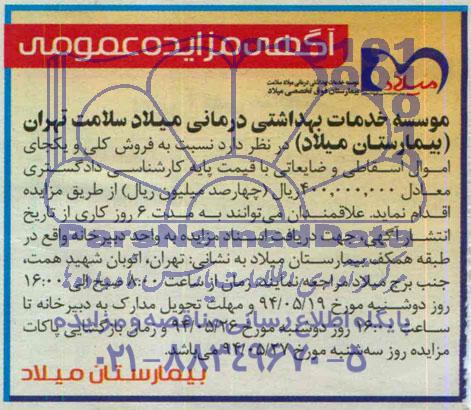 آگهی مزایده عمومی
میلاد
موسسه خدمات بهداشتی درمانی میلاد سلامت
بیمارستان فوق تخصصی میلاد
موسسه خدمات بهداشتی درمانی میلاد سلامت تهران
(بیمارستان میلاد) در نظر دارد نسبت به فروش کلی و یکجای
اموال اسقاطی و ضایعاتی با قیمت پایه کارشناسی دادگستری
معادل ۴۰۰,۰۰۰,۰۰۰ ریال (چهارصد میلیون ریال) از طریق مزایده
اقدام نماید. علاقمندان می‌توانند به مدت ۶ روز کاری از تاریخ
انتشار آگهی جهت دریافت اسناد مزایده به واحد دبیرخانه واقع در
طبقه همکف بیمارستان میلاد به نشانی: تهران، اتوبان شهید همت،
جنب برج میلاد مراجعه نمایند. زمان از ساعت ۸:۰۰ صبح الی ۱۶:۰۰
روز دوشنبه مورخ ۹۴/۰۵/۱۹ و مهلت تحویل مدارک به دبیرخانه تا
ساعت ۱۶:۰۰ روز دوشنبه مورخ ۹۴/۰۵/۲۶ و زمان بازگشایی پاکات
مزایده روز سه‌شنبه مورخ ۹۴/۰۵/۲۷ می‌باشد.
بیمارستان میلاد
ParsNamadData
پایگاه اطلاع رسانی مناقصه و مزایده
۰۲۱-۸۸۳۴۹۶۷۰-۵